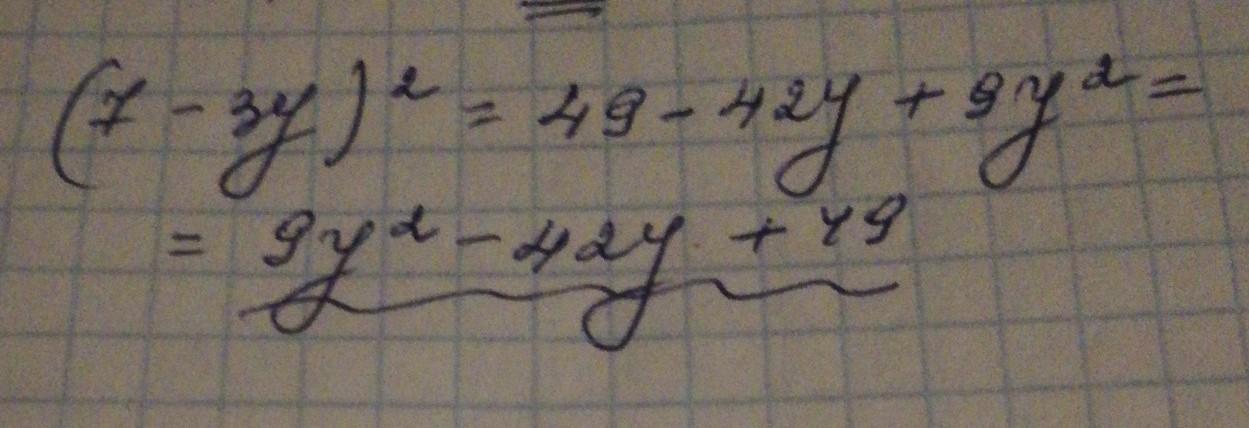 (7 - 3y)² = 49 - 42y + 9y² =
= 9y² - 42y + 49